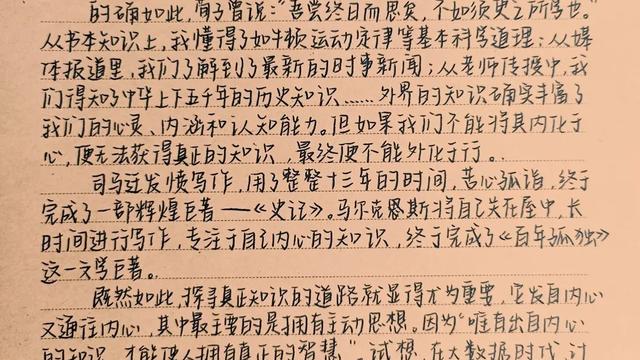 的确如此，荀子曾说：“吾尝终日而思矣，不如须臾之所学也。”
从书本知识上，我懂得了如牛顿运动定律等基本科学道理；从媒
体报道里，我们了解到了最新的时事新闻；从老师传授中，我
们得知了中华上下五千年的历史知识……外界的知识确实丰富了
我们的心灵、内涵和认知能力。但如果我们不能将其内化于
心，便无法获得真正的知识，最终便不能外化于行。
司马迁发愤写作，用了整整十三年的时间，苦心孤诣，终于
完成了一部辉煌巨著——《史记》。马尔克恩斯将自己关在屋中，长
时间进行写作，专注于自己内心的知识，终于完成了《百年孤独》
这一文学巨著。
既然如此，探寻真正知识的道路就显得尤为重要，它发自内心
又通往内心，其中最主要的是拥有主动思想。因为“唯有出自内心
的知识，才能使人拥有真正的智慧”。试想，在大数据时代，过